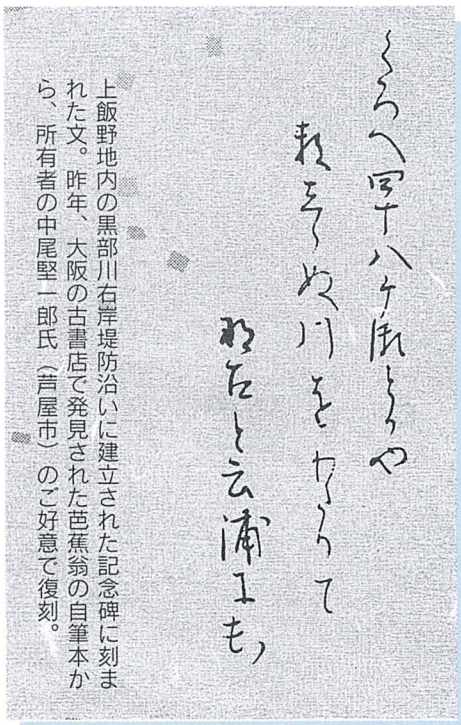 くろへ四十八ヶ瀬とかや
数しらぬ川をわたりて
那古と云浦に
上飯野地内の黒部川右岸堤防沿いに建立された記念碑に刻ま
れた文。昨年、大阪の古書店で発見された芭蕉翁の自筆本か
ら、所有者の中尾堅一郎氏（芦屋市）のご好意で復刻。